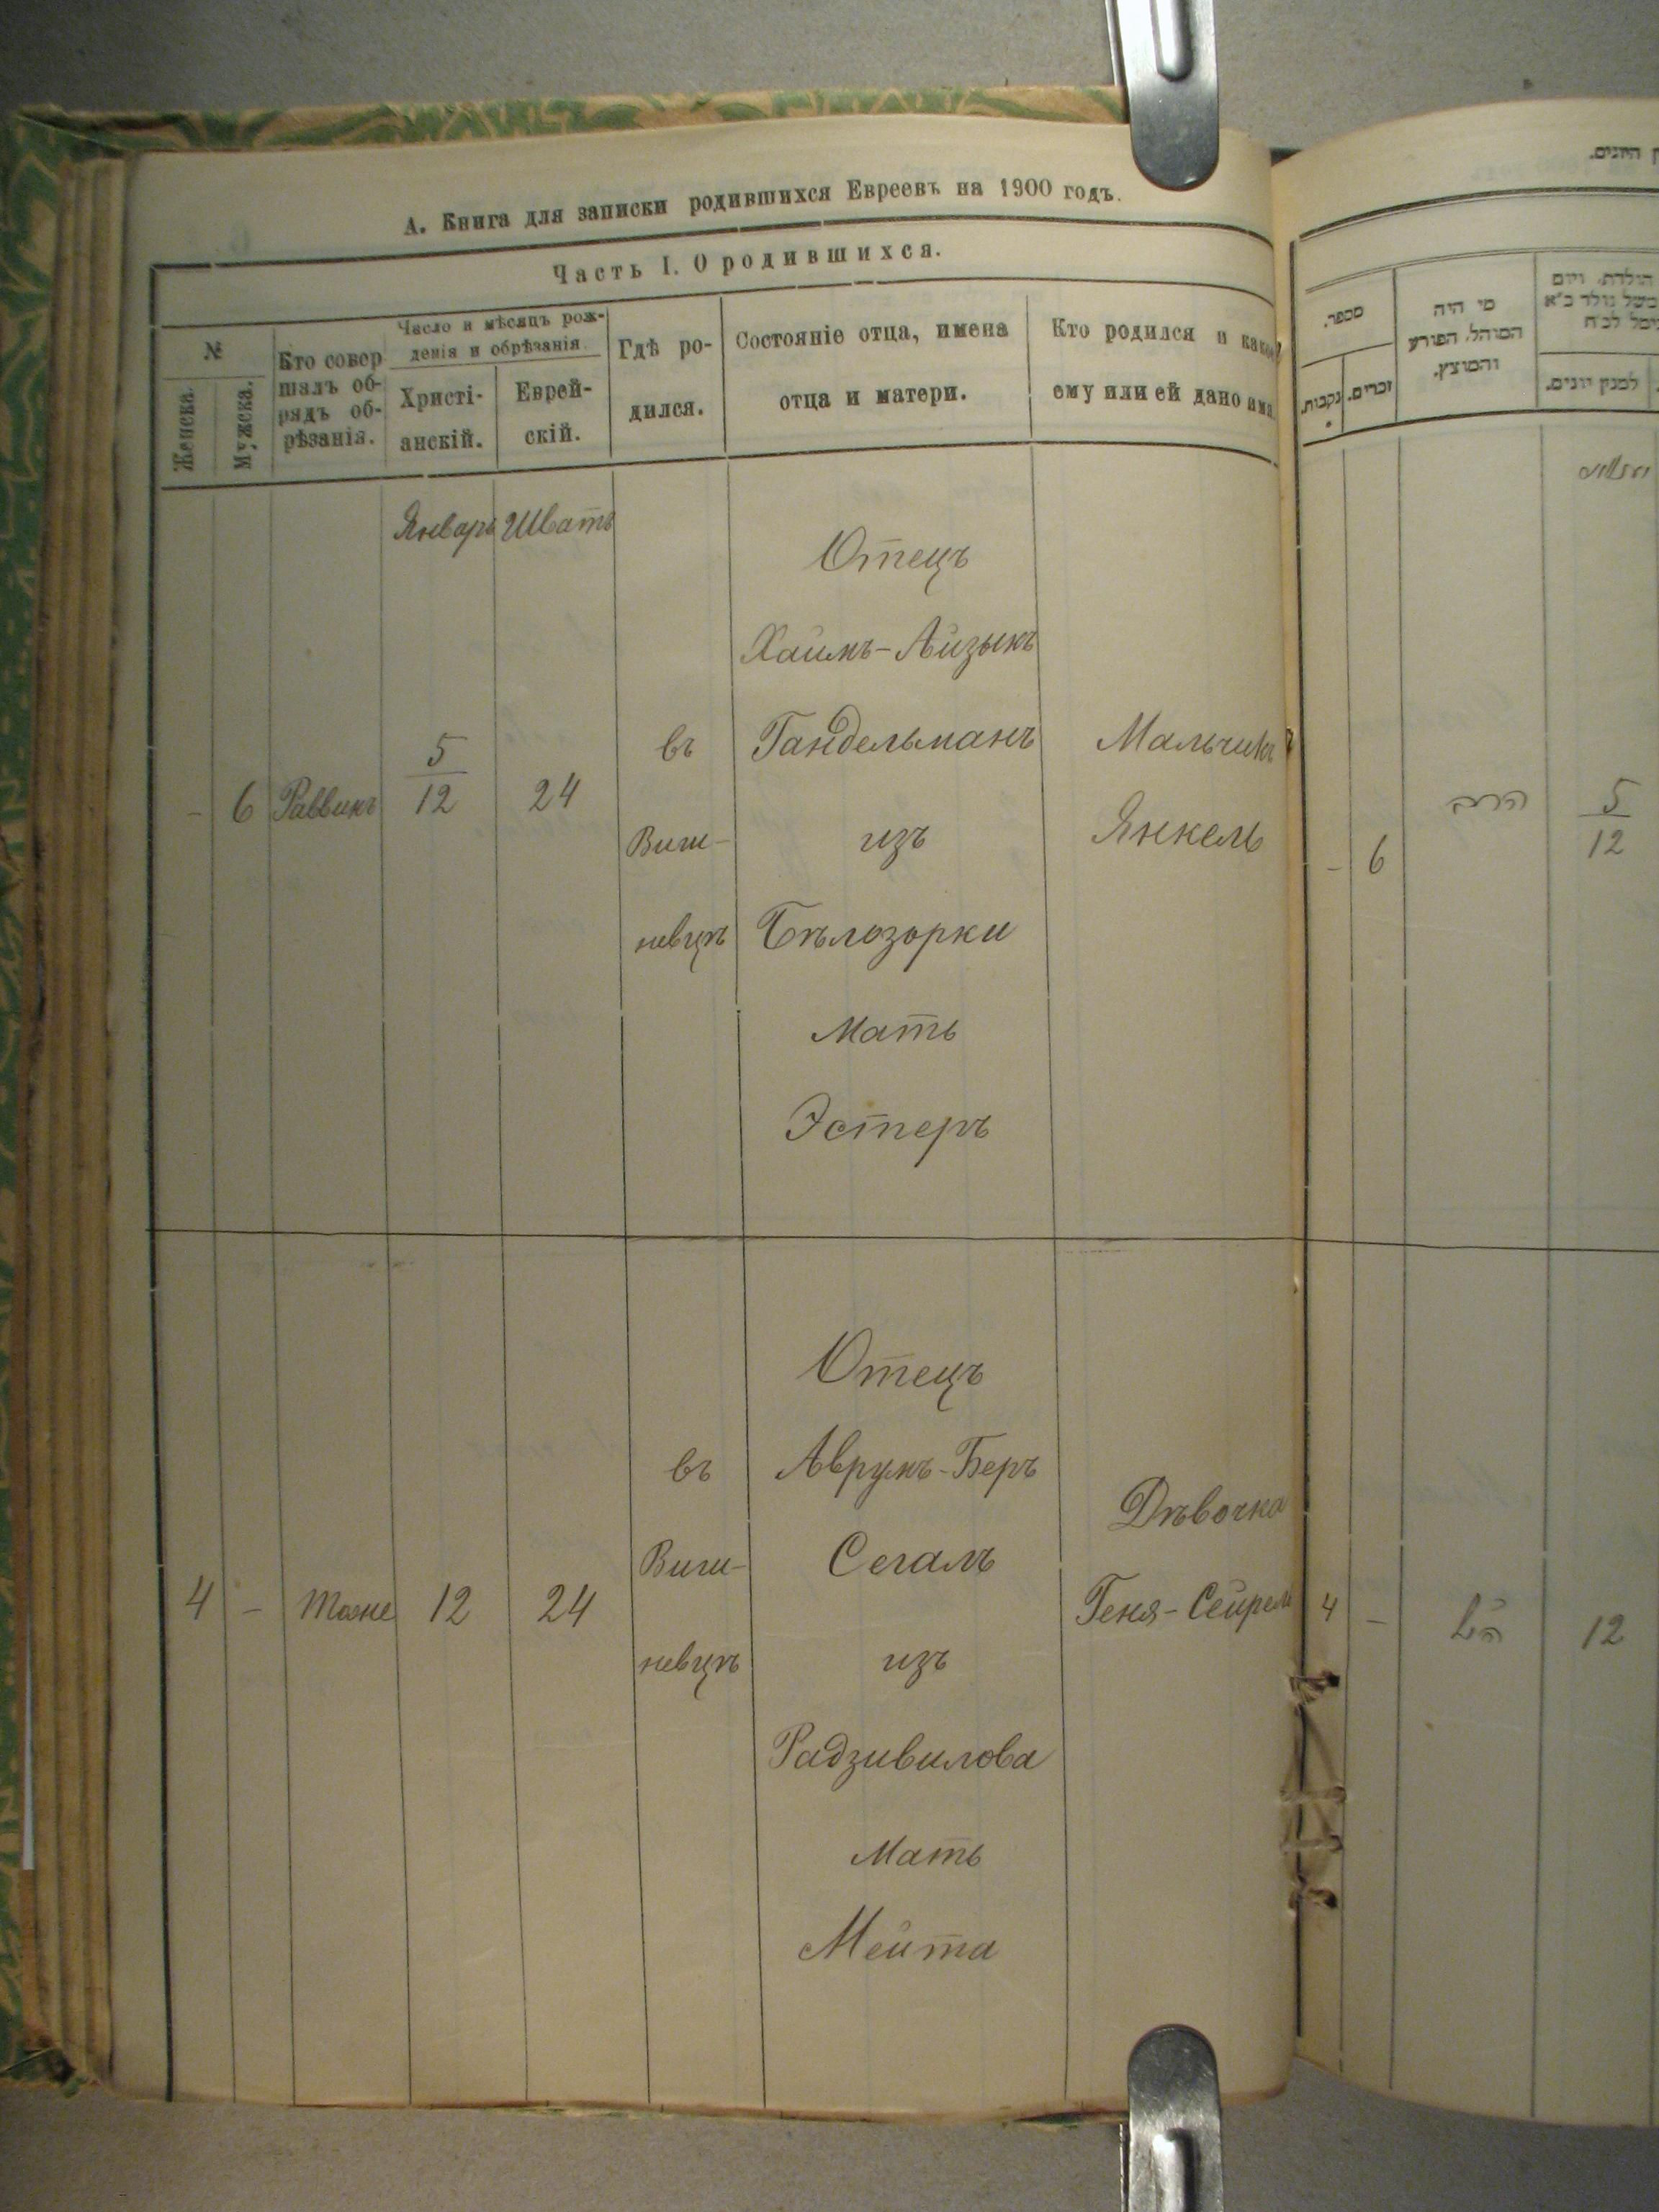 А. Книга для записки родившихся Евреевъ на 1900 годъ.
Часть I. О родившихся.
№
Женска.
Мужска.
Кто совер
шалъ об-
рядъ об-
рѣзанія.
Число и мѣсяцъ рож-
денія и обрѣзанія.
Христі-
анскій.
Еврей-
скій.
Гдѣ ро-
дился.
Состояніе отца, имена
отца и матери.
Кто родился и какое
ему или ей дано имя.
Январь Шватъ
- 6 Раввинъ
5
12
24
въ
Виш-
невцѣ
Отецъ
Хаимъ-Айзыкъ
Гандельманъ
изъ
Бѣлозорки
Мать
Эстеръ
Мальчикъ
Янкель
4 - Тоже 12 24
въ
Виш-
невцѣ
Отецъ
Аврумъ-Беръ
Сегалъ
изъ
Радзивилова
Мать
Мейта
Дѣвочка
Геня-Сейрель
היונים.
מספר.
נקבות.
זכרים.
מי היה
המוהל, הפורע
והמוצץ.
הולדת, ויום
למנין יונים.
- 6
הרב
5
12
4 -
12